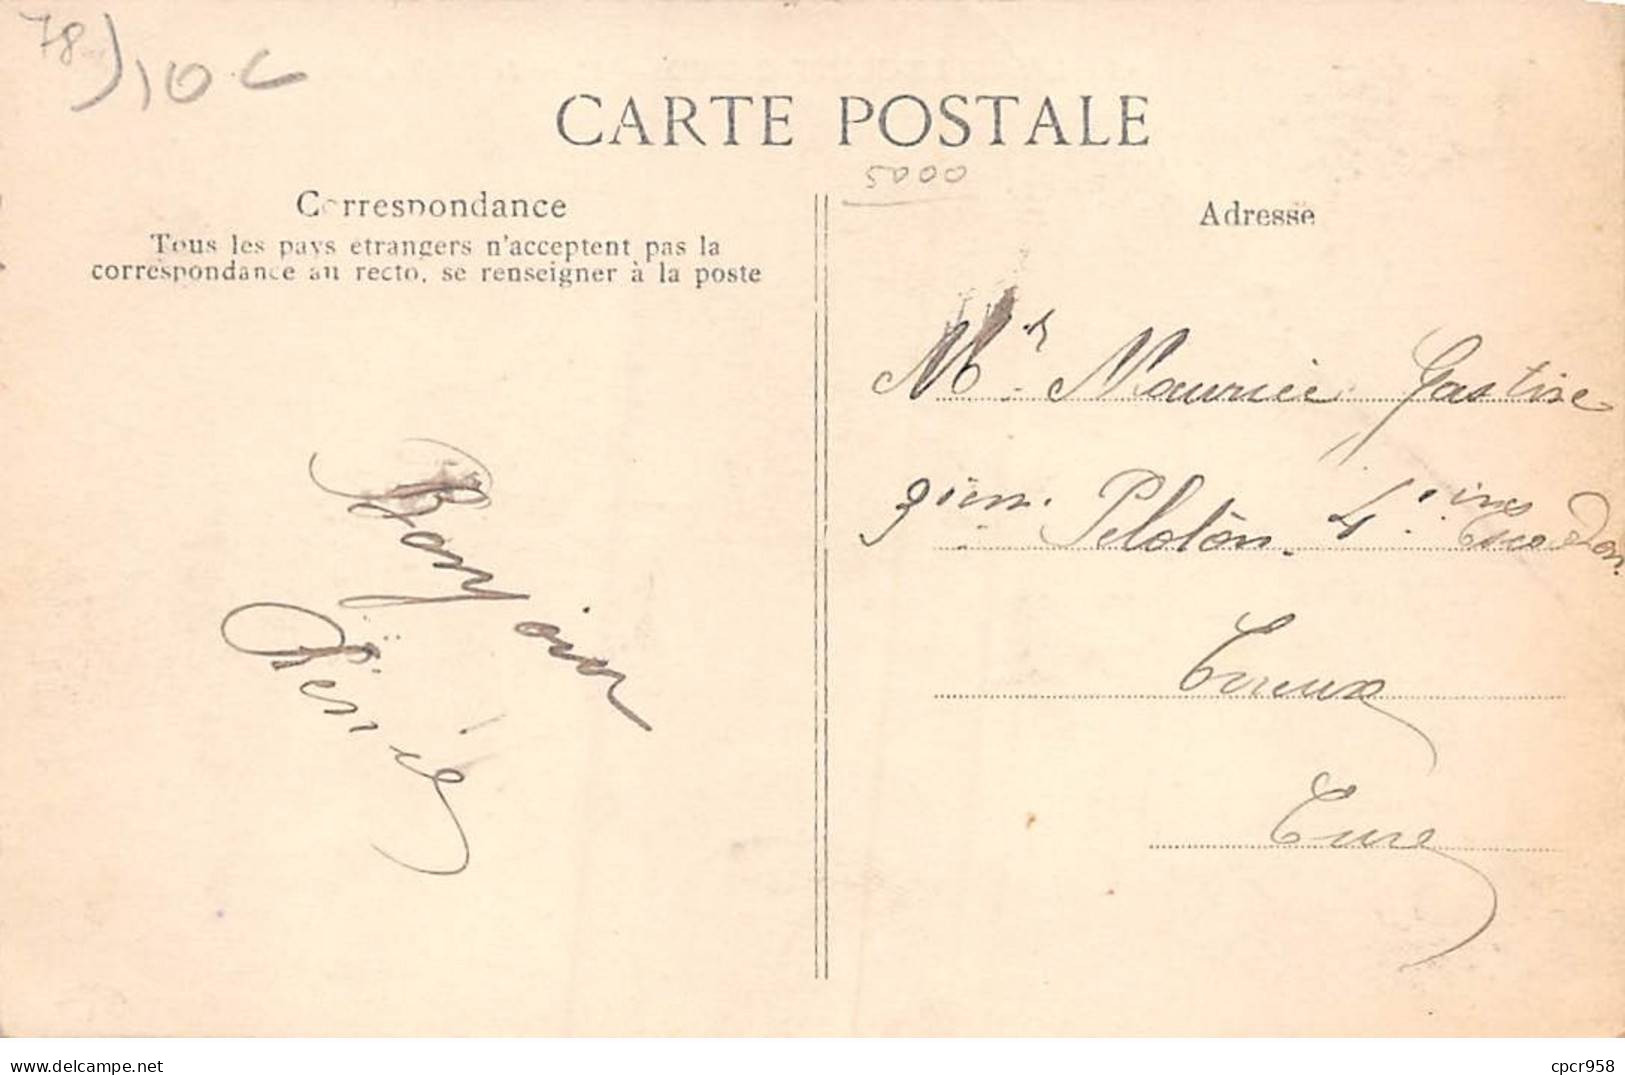 78
10 C
CARTE POSTALE
5000
Correspondance
Tous les pays étrangers n'acceptent pas la
correspondance au recto, se renseigner à la poste
Adresse
Mr. Maurice Gastine
3ièm. Peloton. 4.ième Escadron.
Evreux
Eure
Bonjour
Renée
www.delcampe.net
cpcr958